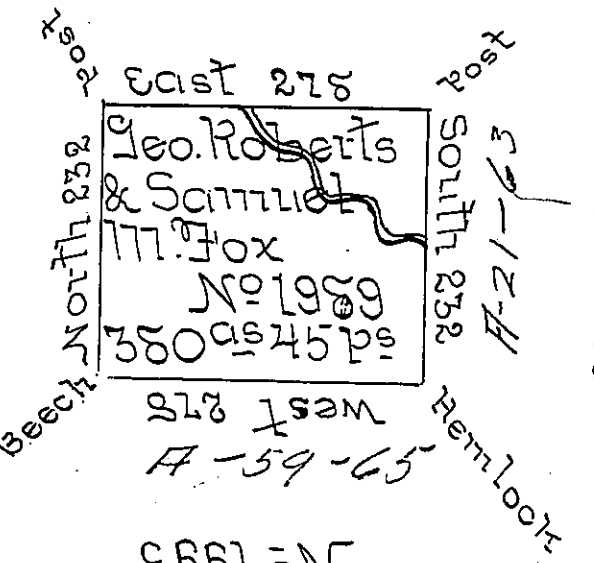 Post
East 278
Post
North 232
Geo. Roberts
& Samuel
M. Fox
Nº 1989
380 as 45 ps
South 232
A-21-63
Beech
West 278
Hemlock
A-59-65